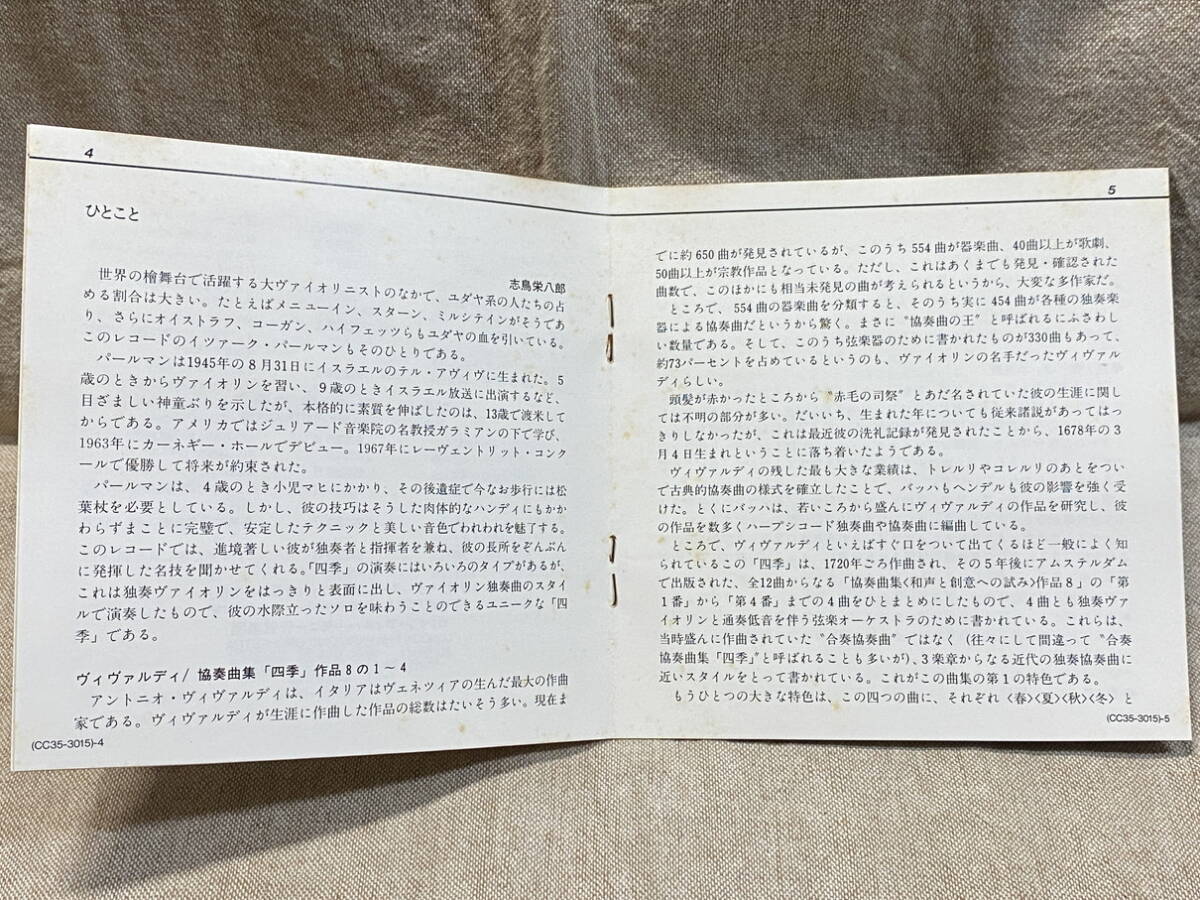 4
ひとこと
志鳥栄八郎
世界の檜舞台で活躍する大ヴァイオリニストのなかで、ユダヤ系の人たちの占
める割合は大きい。たとえばメニューイン、スターン、ミルシテインがそうであ
り、さらにオイストラフ、コーガン、ハイフェッツらもユダヤの血を引いている。
このレコードのイツァーク・パールマンもそのひとりである。
パールマンは1945年の8月31日にイスラエルのテル・アヴィヴに生まれた。5
歳のときからヴァイオリンを習い、9歳のときイスラエル放送に出演するなど、
目ざましい神童ぶりを示したが、本格的に素質を伸ばしたのは、13歳で渡米して
からである。アメリカではジュリアード音楽院の名教授ガラミアンの下で学び、
1963年にカーネギー・ホールでデビュー。1967年にレーヴェントリット・コンク
ールで優勝して将来が約束された。
パールマンは、4歳のとき小児マヒにかかり、その後遺症で今なお歩行には松
葉杖を必要としている。しかし、彼の技巧はそうした肉体的なハンディにもかか
わらずまことに完璧で、安定したテクニックと美しい音色でわれわれを魅了する。
このレコードでは、進境著しい彼が独奏者と指揮者を兼ね、彼の長所をぞんぶん
に発揮した名技を聞かせてくれる。「四季」の演奏にはいろいろのタイプがあるが、
これは独奏ヴァイオリンをはっきりと表面に出し、ヴァイオリン独奏曲のスタイ
ルで演奏したもので、彼の水際立ったソロを味わうことのできるユニークな「四
季」である。
ヴィヴァルディ/協奏曲集「四季」作品8の1～4
アントニオ・ヴィヴァルディは、イタリアはヴェネツィアの生んだ最大の作曲
家である。ヴィヴァルディが生涯に作曲した作品の総数はたいそう多い。現在ま
(CC35-3015)-4
5
でに約650曲が発見されているが、このうち554曲が器楽曲、40曲以上が歌劇、
50曲以上が宗教作品となっている。ただし、これはあくまでも発見・確認された
曲数で、このほかにも相当未発見の曲が考えられるというから、大変な多作家だ。
ところで、554曲の器楽曲を分類すると、そのうち実に454曲が各種の独奏楽
器による協奏曲だというから驚く。まさに〝協奏曲の王〟と呼ばれるにふさわし
い数量である。そして、このうち弦楽器のために書かれたものが330曲もあって、
約73パーセントを占めているというのも、ヴァイオリンの名手だったヴィヴァル
ディらしい。
頭髪が赤かったところから〝赤毛の司祭〟とあだ名されていた彼の生涯に関し
ては不明の部分が多い。だいいち、生まれた年についても従来諸説があってはっ
きりしなかったが、これは最近彼の洗礼記録が発見されたことから、1678年の3
月4日生まれということに落ち着いたようである。
ヴィヴァルディの残した最も大きな業績は、トレルリやコレルリのあとをつい
で古典的協奏曲の様式を確立したことで、バッハもヘンデルも彼の影響を強く受
けた。とくにバッハは、若いころから盛んにヴィヴァルディの作品を研究し、彼
の作品を数多くハープシコード独奏曲や協奏曲に編曲している。
ところで、ヴィヴァルディといえばすぐ口をついて出てくるほど一般によく知
られているこの「四季」は、1720年ごろ作曲され、その5年後にアムステルダム
で出版された、全12曲からなる「協奏曲集〈和声と創意への試み〉作品8」の「第
1番」から「第4番」までの4曲をひとまとめにしたもので、4曲とも独奏ヴァ
イオリンと通奏低音を伴う弦楽オーケストラのために書かれている。これらは、
当時盛んに作曲されていた〝合奏協奏曲〟ではなく(往々にして間違って〝合奏
協奏曲集「四季」〟と呼ばれることも多いが)、3楽章からなる近代の独奏協奏曲に
近いスタイルをとって書かれている。これがこの曲集の第1の特色である。
もうひとつの大きな特色は、この四つの曲に、それぞれ〈春〉〈夏〉〈秋〉〈冬〉と
(CC35-3015)-5